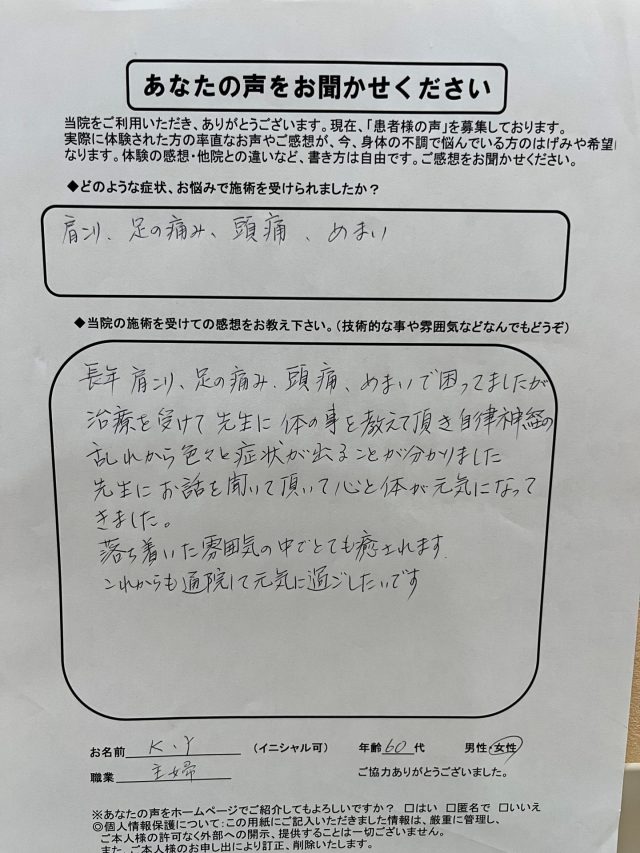 あなたの声をお聞かせください
当院をご利用いただき、ありがとうございます。現在、「患者様の声」を募集しております。
実際に体験された方の率直なお声やご感想が、今、身体の不調で悩んでいる方のはげみや希望に
なります。体験の感想・他院との違いなど、書き方は自由です。ご感想をお聞かせください。
◆どのような症状、お悩みで施術を受けられましたか？
肩こり、足の痛み、頭痛、めまい
◆当院の施術を受けての感想をお教え下さい。（技術的な事や雰囲気などなんでもどうぞ）
長年 肩こり、足の痛み、頭痛、めまいで困ってましたが
治療を受けて先生に体の事を教えて頂き自律神経の
乱れから色々と症状が出ることが分かりました
先生にお話を聞いて頂いて心と体が元気になって
きました。
落ち着いた雰囲気の中でとても癒されます。
これからも通院して元気に過ごしたいです
お名前 K.Y （イニシャル可） 年齢 60 代 男性・女性
職業 主婦 ご協力ありがとうございました。
※あなたの声をホームページでご紹介してもよろしいですか？ □はい □匿名で □いいえ
◎個人情報保護について：この用紙にご記入いただきました情報は、厳重に管理し、
ご本人様の許可なく外部への開示、提供することは一切ございません。
また、ご本人様のお申し出により訂正、削除いたします。